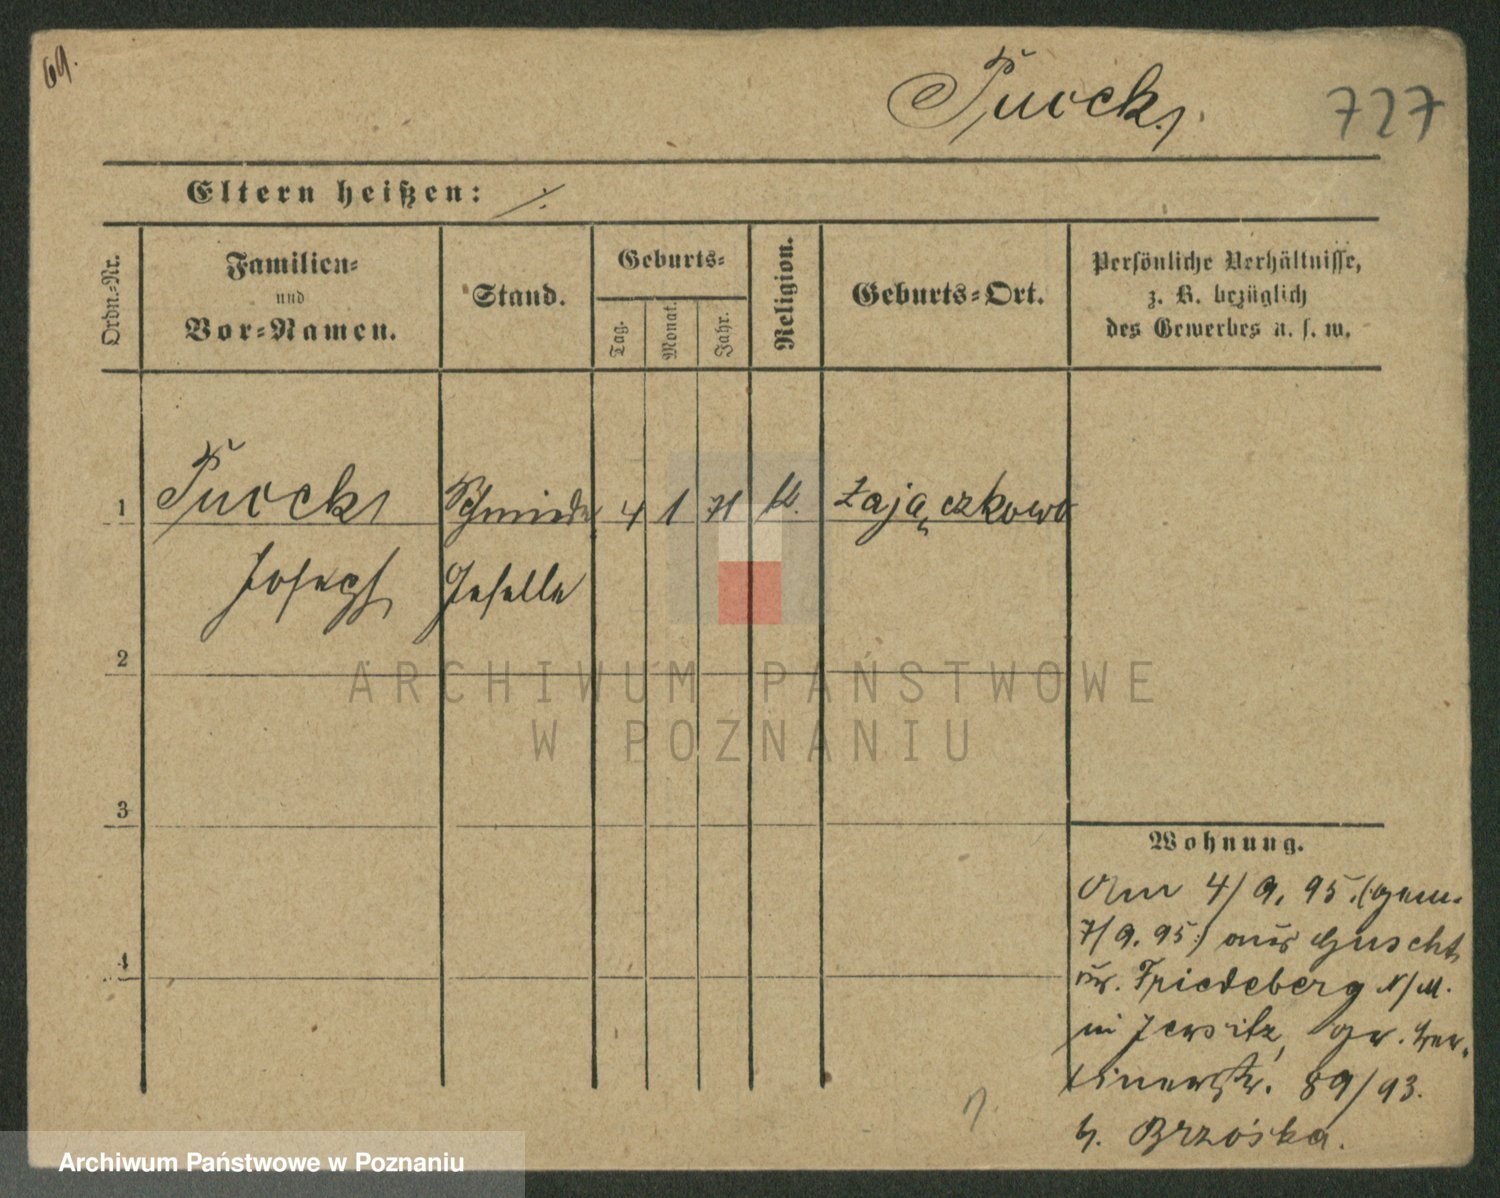 69.
Pucck
727
Eltern heißen: ./.
Ordn.=Nr.
Familien=
und
Vor=Namen.
Stand.
Geburts=
Tag.
Monat.
Jahr.
Religion.
Geburts=Ort.
Persönliche Verhältnisse,
z. B. bezüglich
des Gewerbes u. s. w.
1 Schmiede 4 1 71 K. Zajączkowo
Joseph Geselle
2
3
4
Wohnung.
Am 4/9. 95. (gem.
7/9. 95.) aus Guscht
Kr. Friedeberg N/M.
in Jersitz, gr. Ber-
linerstr. 89/93.
b. Brzoska.
ARCHIWUM PAŃSTWOWE
W POZNANIU
Archiwum Państwowe w Poznaniu